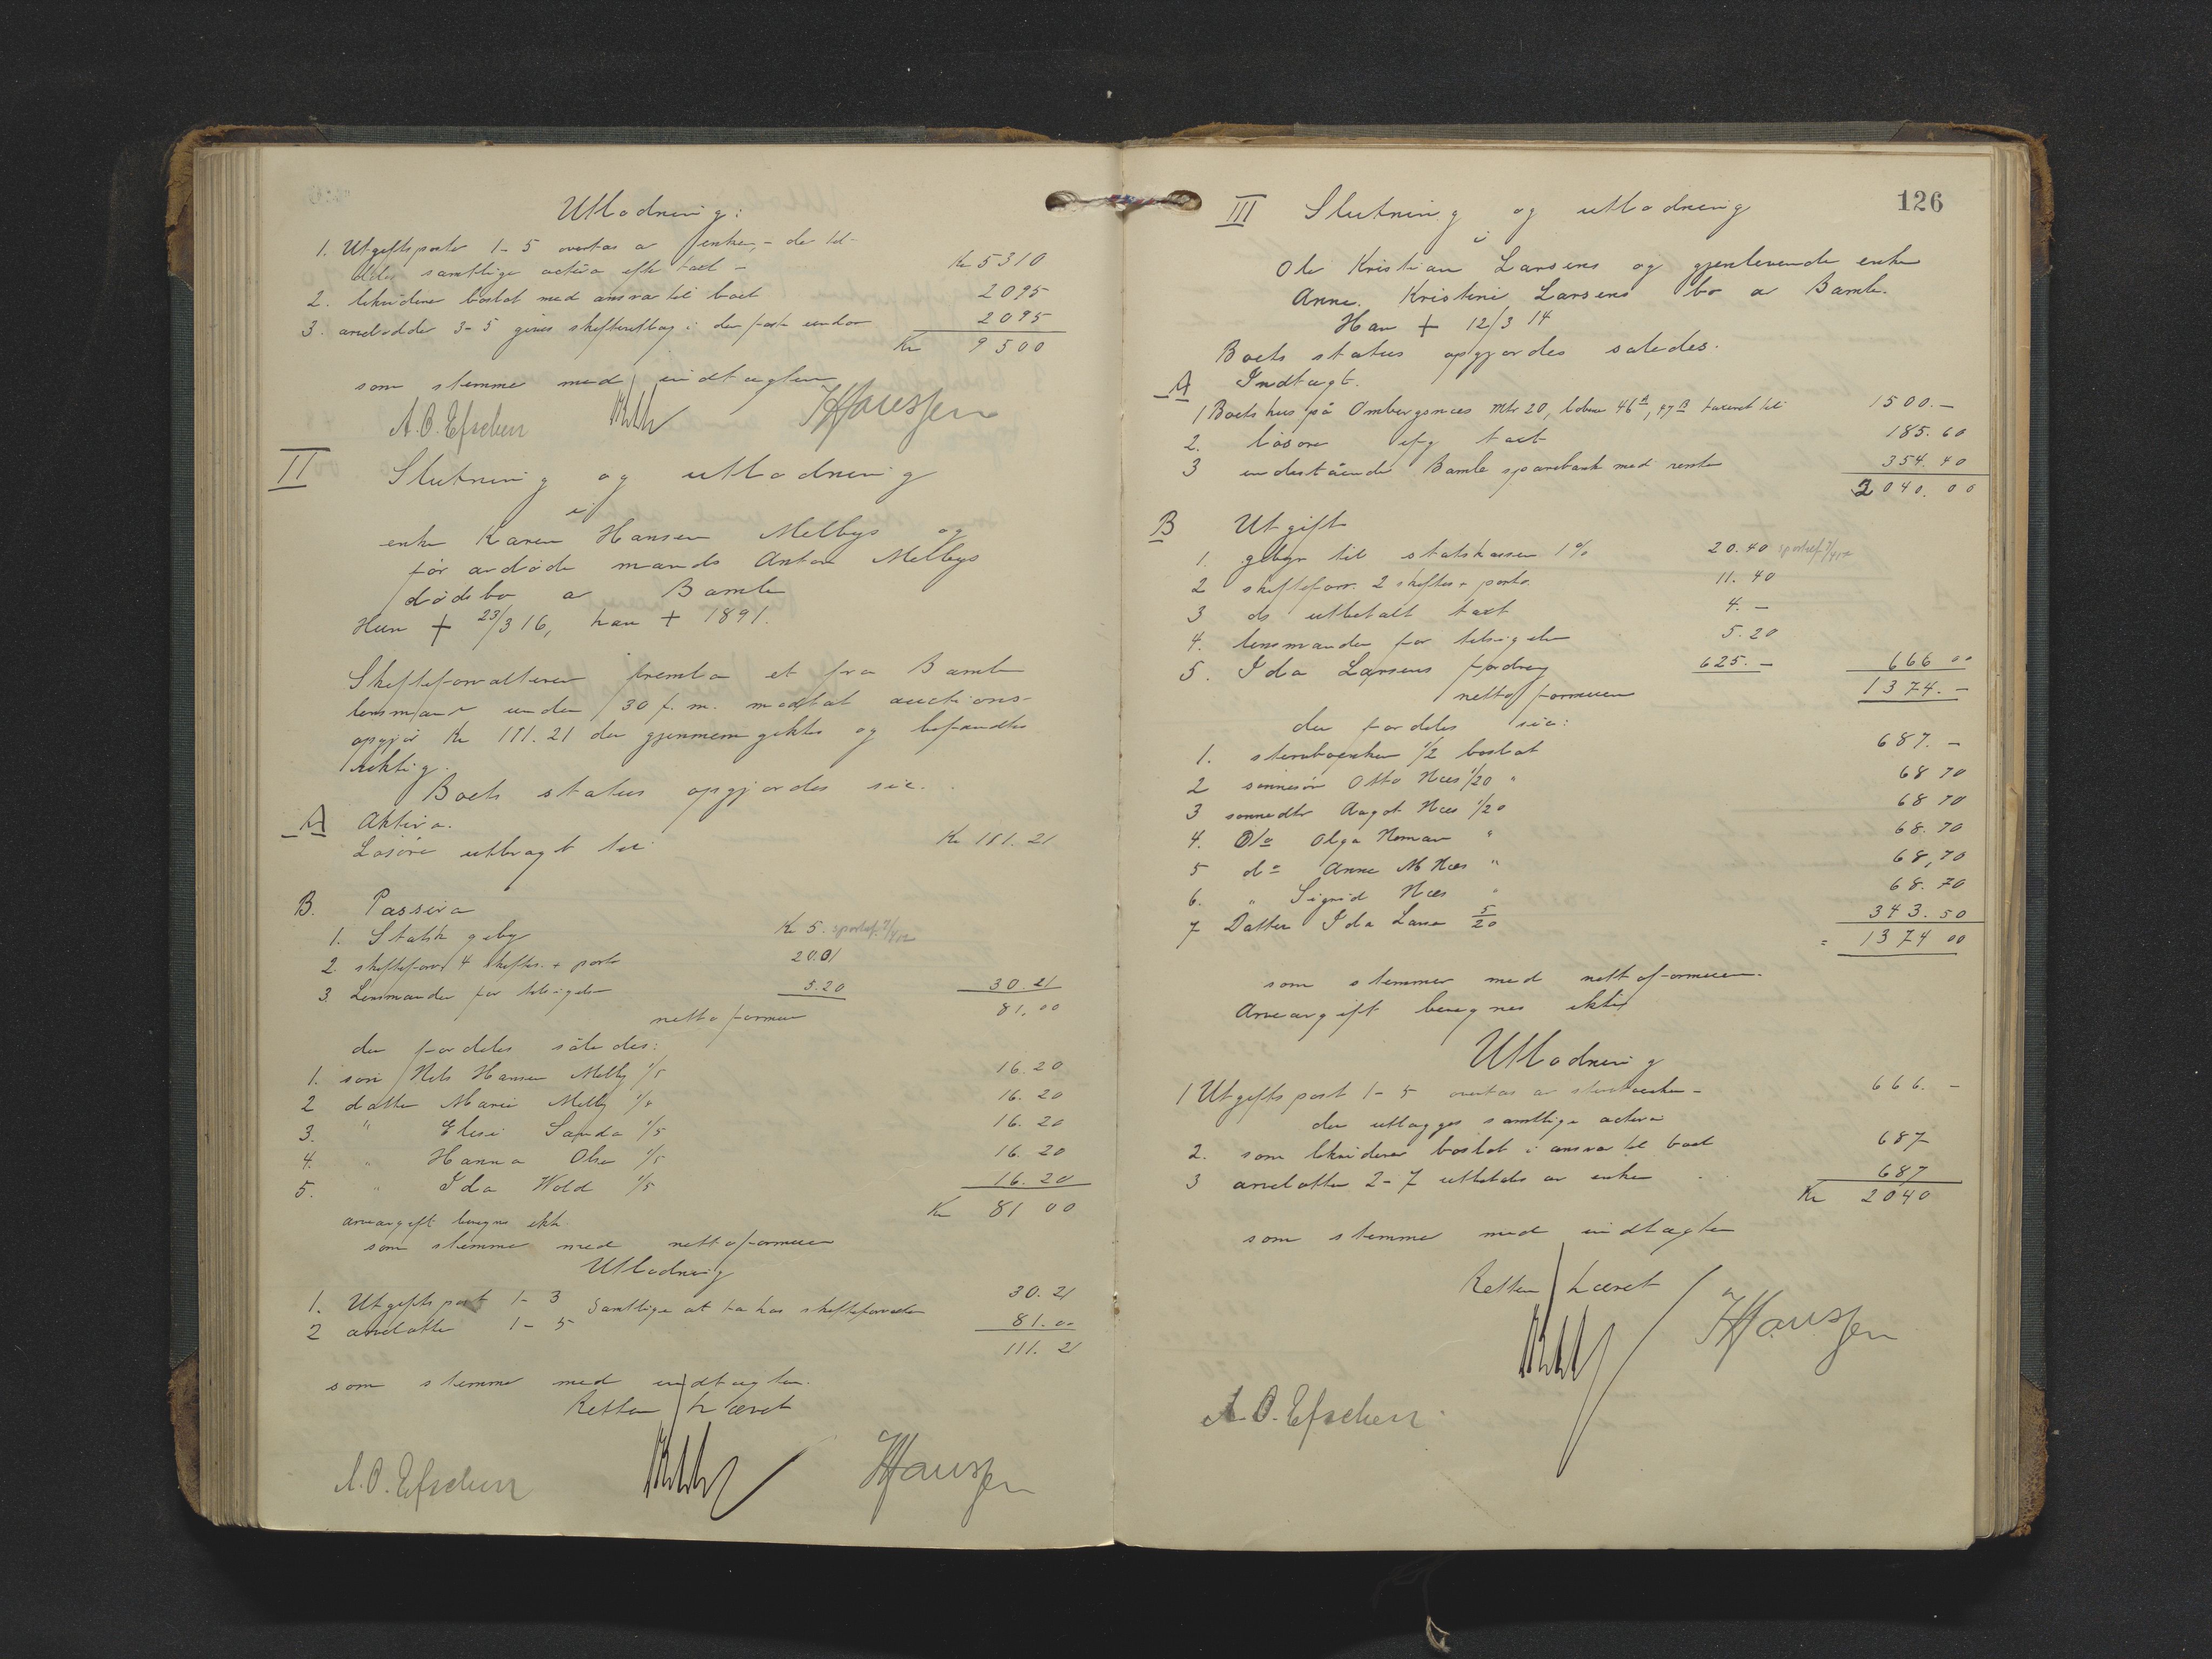 Utlodning:
1. Utgiftsposter 1-5 overtas av enken, - der til-
deles samtlige activa efter taxt - Kr 5310
2. likviderer boslod med ansvar til boet 2095
3. arvelodder 3-5 gives skifteutlæg i den faste eiendom 2095
Kr 9500
som stemmer med indtægten
A. O. Efschen HHanssen
II Slutning og utlodning
i
enke Karen Hansen Melbys og
før avdøde mands Anton Melbys
dødsbo av Bamle
Hun + 23/3 16, han + 1891.
Skifteforvalteren fremla et fra Bamle
lensmand under 30 f. m. mottat auctions-
opgjør Kr 111.21 der gjennemgikkes og befandtes
riktig.
Boets status opgjordes sic.
A Aktiva.
Løsøre utbragt til Kr 111.21
B. Passiva
1. Statsk gebyr Kr 5. sportelf. 7/4 12
2. skifteforv. 4 skiftes. + porto 20.01
3. Lensmanden for tilsigelse 5.20 30.21
netto formue 81.00
der fordeles således:
1. søn Nils Hansen Melby 1/5 16.20
2 datter Marie Melby 1/5 16.20
3. " Elise Sanda 1/5 16.20
4. " Hanna Olsen 1/5 16.20
5. " Ida Wold 1/5 16.20
Kr 81 00
arveavgift beregnes ikke.
som stemmer med nettoformuen
Utlodning
1. Utgiftspost 1-3 30.21
Samtlige at ta hos skifteforvalteren
2 arvelotter 1-5 81.00
111.21
som stemmer med indtægten.
Retten hævet
A. O. Efschen HHanssen
126
III Slutning og utlodning
i
Ole Kristian Larsens og gjenlevende enke
Anne Kristine Larsens bo av Bamle.
Han + 12/3 14
Boets status opgjordes således.
A Indtægt.
1 Boets hus på Ombergsnæs Mtr 20, løbenr 46 a, 47 B taxeret til 1500.-
2. løsøre ifg taxt 185.60
3 indestående Bamle sparebank med renter 354.40
2040.00
B Utgift
1. gebyr til statskassen 1% 20.40 sportelf 7/4 12
2 skifteforv. 2 skiftes + porto. 11.40
3 ds utbetalt taxt 4.-
4. lensmanden for tilsigelse 5.20
5. Ida Larsens fordring 625.- 666 00
netto formuen 1374.-
der fordeles sic:
1. stervboenken 1/2 boslod 687.-
2 sønnesøn Otto Næs 1/20 " 68 70
3 sønnedtr Aagot Næs 1/20 68 70
4. Do Olga Noman " 68.70
5 do Anne M Næs " 68,70
6. " Sigrid Næs " 68.70
7 Datter Ida Larsen 5/20 343.50
= 1374 00
som stemmer med nettoformuen.
Arveavgift beregnes ikke
Utlodning
1 Utgiftspost 1-5 overtas av stervboenken - 666.-
der utlægges samtlige activa
2. som likviderer boslod i ansvar til boet 687
3 arvelotter 2-7 utbetales av enken 687
Kr 2040
som stemmer med indtægten
Retten hævet
HHanssen
A. O. Efschen.